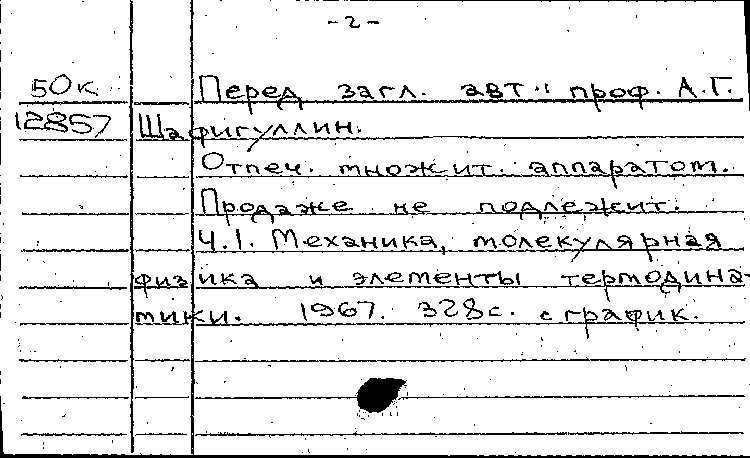 -2-
50к Перед загл. авт.: проф. А.Г.
12857 Шафигуллин.
Отпеч. множит. аппаратом.
Продаже не подлежит.
Ч.1. Механика, молекулярная
физика и элементы термодина-
мики. 1967. 328с. с график.